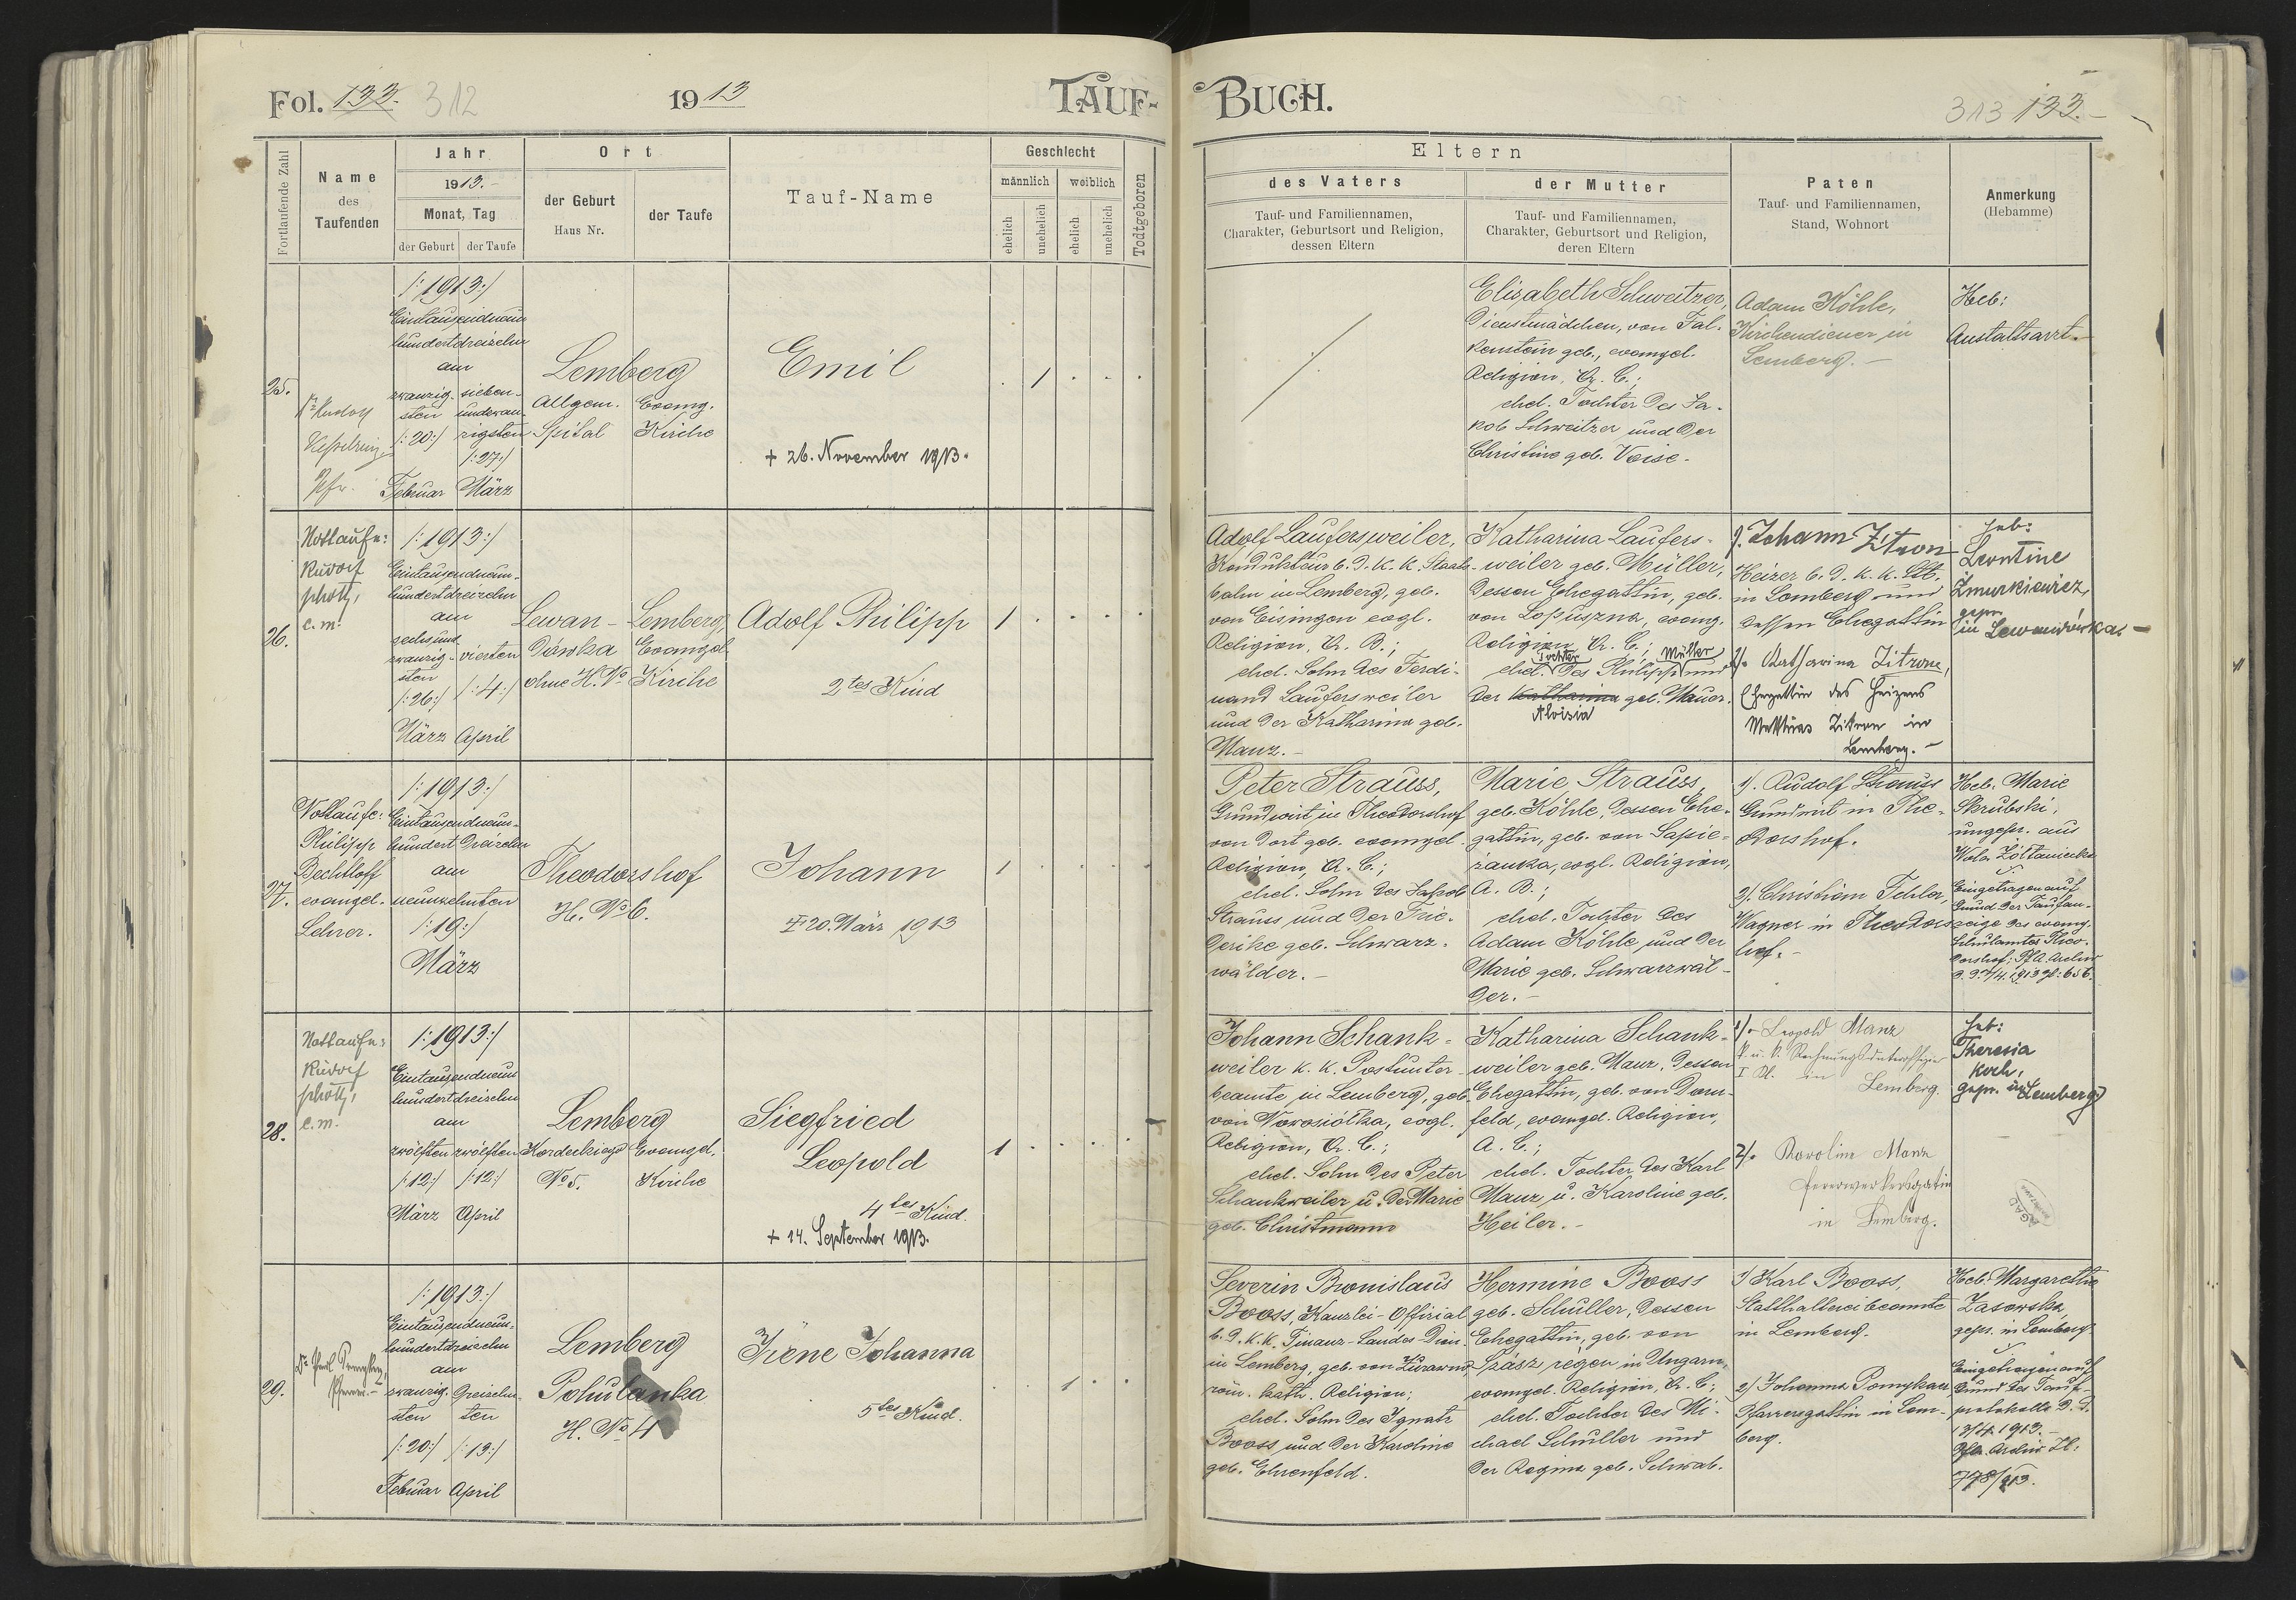 Fol. 133. 312
1913
TAUF-
BUCH.
313 133.-
Fortlaufende Zahl
Name
des
Taufenden
Jahr
1913.-
Monat, Tag
der Geburt
der Taufe
Ort
der Geburt
Haus Nr.
der Taufe
Tauf-Name
Geschlecht
männlich
weiblich
ehelich
unehelich
ehelich
unehelich
Todtgeboren
Eltern
des Vaters
Tauf- und Familiennamen,
Charakter, Geburtsort und Religion,
dessen Eltern
der Mutter
Tauf- und Familiennamen,
Charakter, Geburtsort und Religion,
deren Eltern
Paten
Tauf- und Familiennamen,
Stand, Wohnort
Anmerkung
(Hebamme)
25.
Dr. Rudolf
Kesselring
Pfr.
/:1913:/
Eintausendneun-
hundertdreizehn
am
zwanzig-
sten
/:20:/
Februar
sieben-
undzwan-
zigsten
/:27:/
März
Lemberg
Allgem.
Spital
Evang.
Kirche
Emil
+ 26. November 1913.
1
Elisabeth Schweitzer,
Dienstmädchen, von Fal-
kenstein geb., evangel.
Religion, A. C.;
ehel. Tochter des Ja-
kob Schweitzer und der
Christine geb. Weise.
Adam Köhle,
Kirchendiener in
Lemberg.-
Heb:
Anstaltsarzt.-
26.
Nottaufe:
Rudolf
c.m.
/:1913:/
Eintausendneun-
hundertdreizehn
am
sechsund
zwanzig-
sten
/:26:/
März
vierten
/:4:/
April
Lewan-
dówka
ohne H.No
Lemberg,
Evangel.
Kirche
Adolf Philipp
2tes Kind
1
Adolf Laufersweiler,
Kondukteur b. d. k. k. Staats-
bahn in Lemberg, geb.
von Eisingen evgl.
Religion, A. B.;
ehel. Sohn des Ferdi-
nand Laufersweiler
und der Katharina geb.
Manz.-
Katharina Laufers-
weiler geb. Müller,
dessen Ehegattin, geb.
von Lopuszna, evang.
Religion, A. C.;
ehel. Tochter des Philipp Müller und
der Katharina geb. Mauer.
Aloisia
1. Johann Zitron
Heizer b. d. k. k. Stb.
in Lemberg und
dessen Ehegattin
2/. Katharina Zitrone,
Ehegattin des Heizers
Matthias Zitron in
Lemberg.-
Heb:
Leontine
Zmurkiewicz,
gepr.
in Lewandówka.-
27.
Nottaufe:
Philipp
Bechtloff
evangel.
Lehrer.
/:1913:/
Eintausendneun-
hundert dreizehn
am
neunzehnten
/:19:/
März
Theodorshof
H. No 6.
Johann
+ 20. März 1913
1
Peter Strauss,
Grundwirt in Theodorshof
von dort geb. evangel.
Religion, A. C.;
ehel. Sohn des Jakob
Strauss und der Frie-
derike geb. Schwarz-
wälder.-
Marie Strauss
geb. Köhle, dessen Ehe-
gattin, geb. von Sapie-
żanka, evgl. Religion,
A. B.;
ehel. Tochter des
Adam Köhle und der
Marie geb. Schwarzwäl-
der.-
1/. Rudolf Strauss
Grundwirt in The-
dorshof.
2/. Christian
Wagner in Theodors-
hof.-
Heb. Marie
Skrubski,
ungepr. aus
Wola Żółtaniecka
Eingetragen auf
Grund der Taufan-
zeige des evang.
Schulamtes Theo-
dorshof; Pf. A. Archiv
d. d. 7/4. 1913 Zl: 656.
28.
Nottaufe:
Rudolf
c.m.
/:1913:/
Eintausendneun
hundertdreizehn
am
zwölften
/:12:/
März
zwölften
/:12:/
April
Lemberg
Kordeckiego
No 5.
Evangel.
Kirche
Siegfried
Leopold
4tes Kind.
+ 14. September 1913.
1
Johann Schank-
weiler k. k. Postunter-
beamte in Lemberg, geb.
von Nowosiółka, evgl.
Religion, A. C.;
ehel. Sohn des Peter
Schankweiler u. der Marie
geb. Christmann
Katharina Schank-
weiler geb. Manz, dessen
Ehegattin, geb. von Dorn-
feld, evangel. Religion,
A. C.;
ehel. Tochter des Karl
Manz u. Karoline geb.
Heiler.-
1/. Leopold Manz
k. u. k. Rechnungsunteroffizier
I Kl. in Lemberg.
2/. Karoline Manz
in Lemberg.
Heb:
Theresia
Koch,
gepr. in Lemberg
AGAD
29.
/:1913:/
Eintausendneun-
hundertdreizehn
am
zwanzig-
sten
/:20:/
Februar
dreizehn-
ten
/:13:/
April
Lemberg
Pohulanka
H. No 4
Irene Johanna
5tes Kind.
1
Severin Bronislaus
Booss, Kanzlei-Offizial
b. d. k. k. Finanz-Landes-Dion.
in Lemberg, geb. von Żurawno,
röm. kath. Religion;
ehel. Sohn des Ignatz
Booss und der Karoline
geb. Ehrenfeld.
Hermine Booss
geb. Schuller, dessen
Ehegattin, geb. von
Szász régen in Ungarn,
evangel. Religion, A. C.;
ehel. Tochter des Mi-
chael Schuller und
der Regina geb. Schwab.
1/ Karl Booss,
Statthaltereibeamte
in Lemberg.
2/ Johanna Pomykacz
Pfarrersgattin in Lem-
berg.
Heb: Margarethe
Zasowska,
gepr. in Lemberg
Eingetragen auf
Grund des Tauf-
protokolls d. d.
13/4. 1913.-
Pfa. Archiv Zl:
778/913.